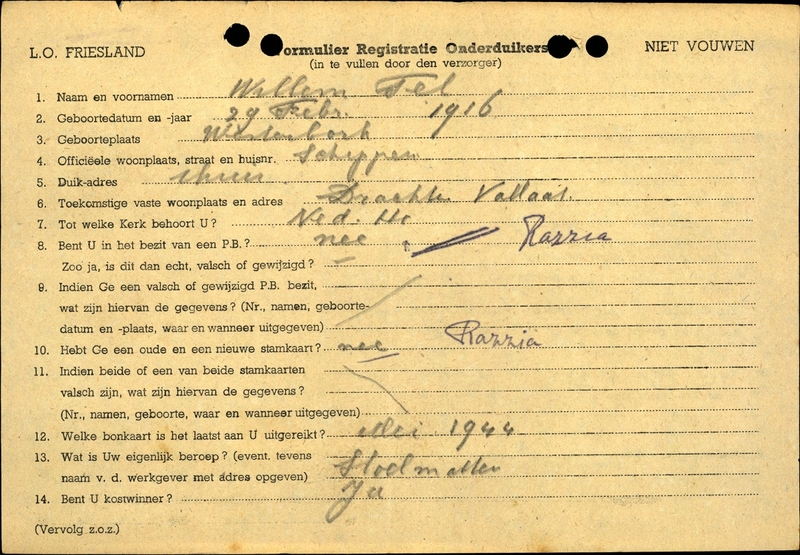 L.O. FRIESLAND
Formulier Registratie Onderduikers
NIET VOUWEN
(in te vullen door den verzorger)
1. Naam en voornamen Willem Tel
2. Geboortedatum en -jaar 29 Febr. 1916
3. Geboorteplaats Westerbork
4. Officiëele woonplaats, straat en huisnr.
5. Duik-adres
6. Toekomstige vaste woonplaats en adres Drachten Vallaat
7. Tot welke Kerk behoort U? Ned. He
8. Bent U in het bezit van een P.B.? nee Razzia
Zoo ja, is dit dan echt, valsch of gewijzigd? —
9. Indien Ge een valsch of gewijzigd P.B. bezit,
wat zijn hiervan de gegevens? (Nr., namen, geboorte-
datum en -plaats, waar en wanneer uitgegeven)
10. Hebt Ge een oude en een nieuwe stamkaart? nee Razzia
11. Indien beide of een van beide stamkaarten
valsch zijn, wat zijn hiervan de gegevens?
(Nr., namen, geboorte, waar en wanneer uitgegeven)
12. Welke bonkaart is het laatst aan U uitgereikt? Mei 1944
13. Wat is Uw eigenlijk beroep? (event. tevens
naam v. d. werkgever met adres opgeven) Stoelmatter
14. Bent U kostwinner? Ja
(Vervolg z.o.z.)